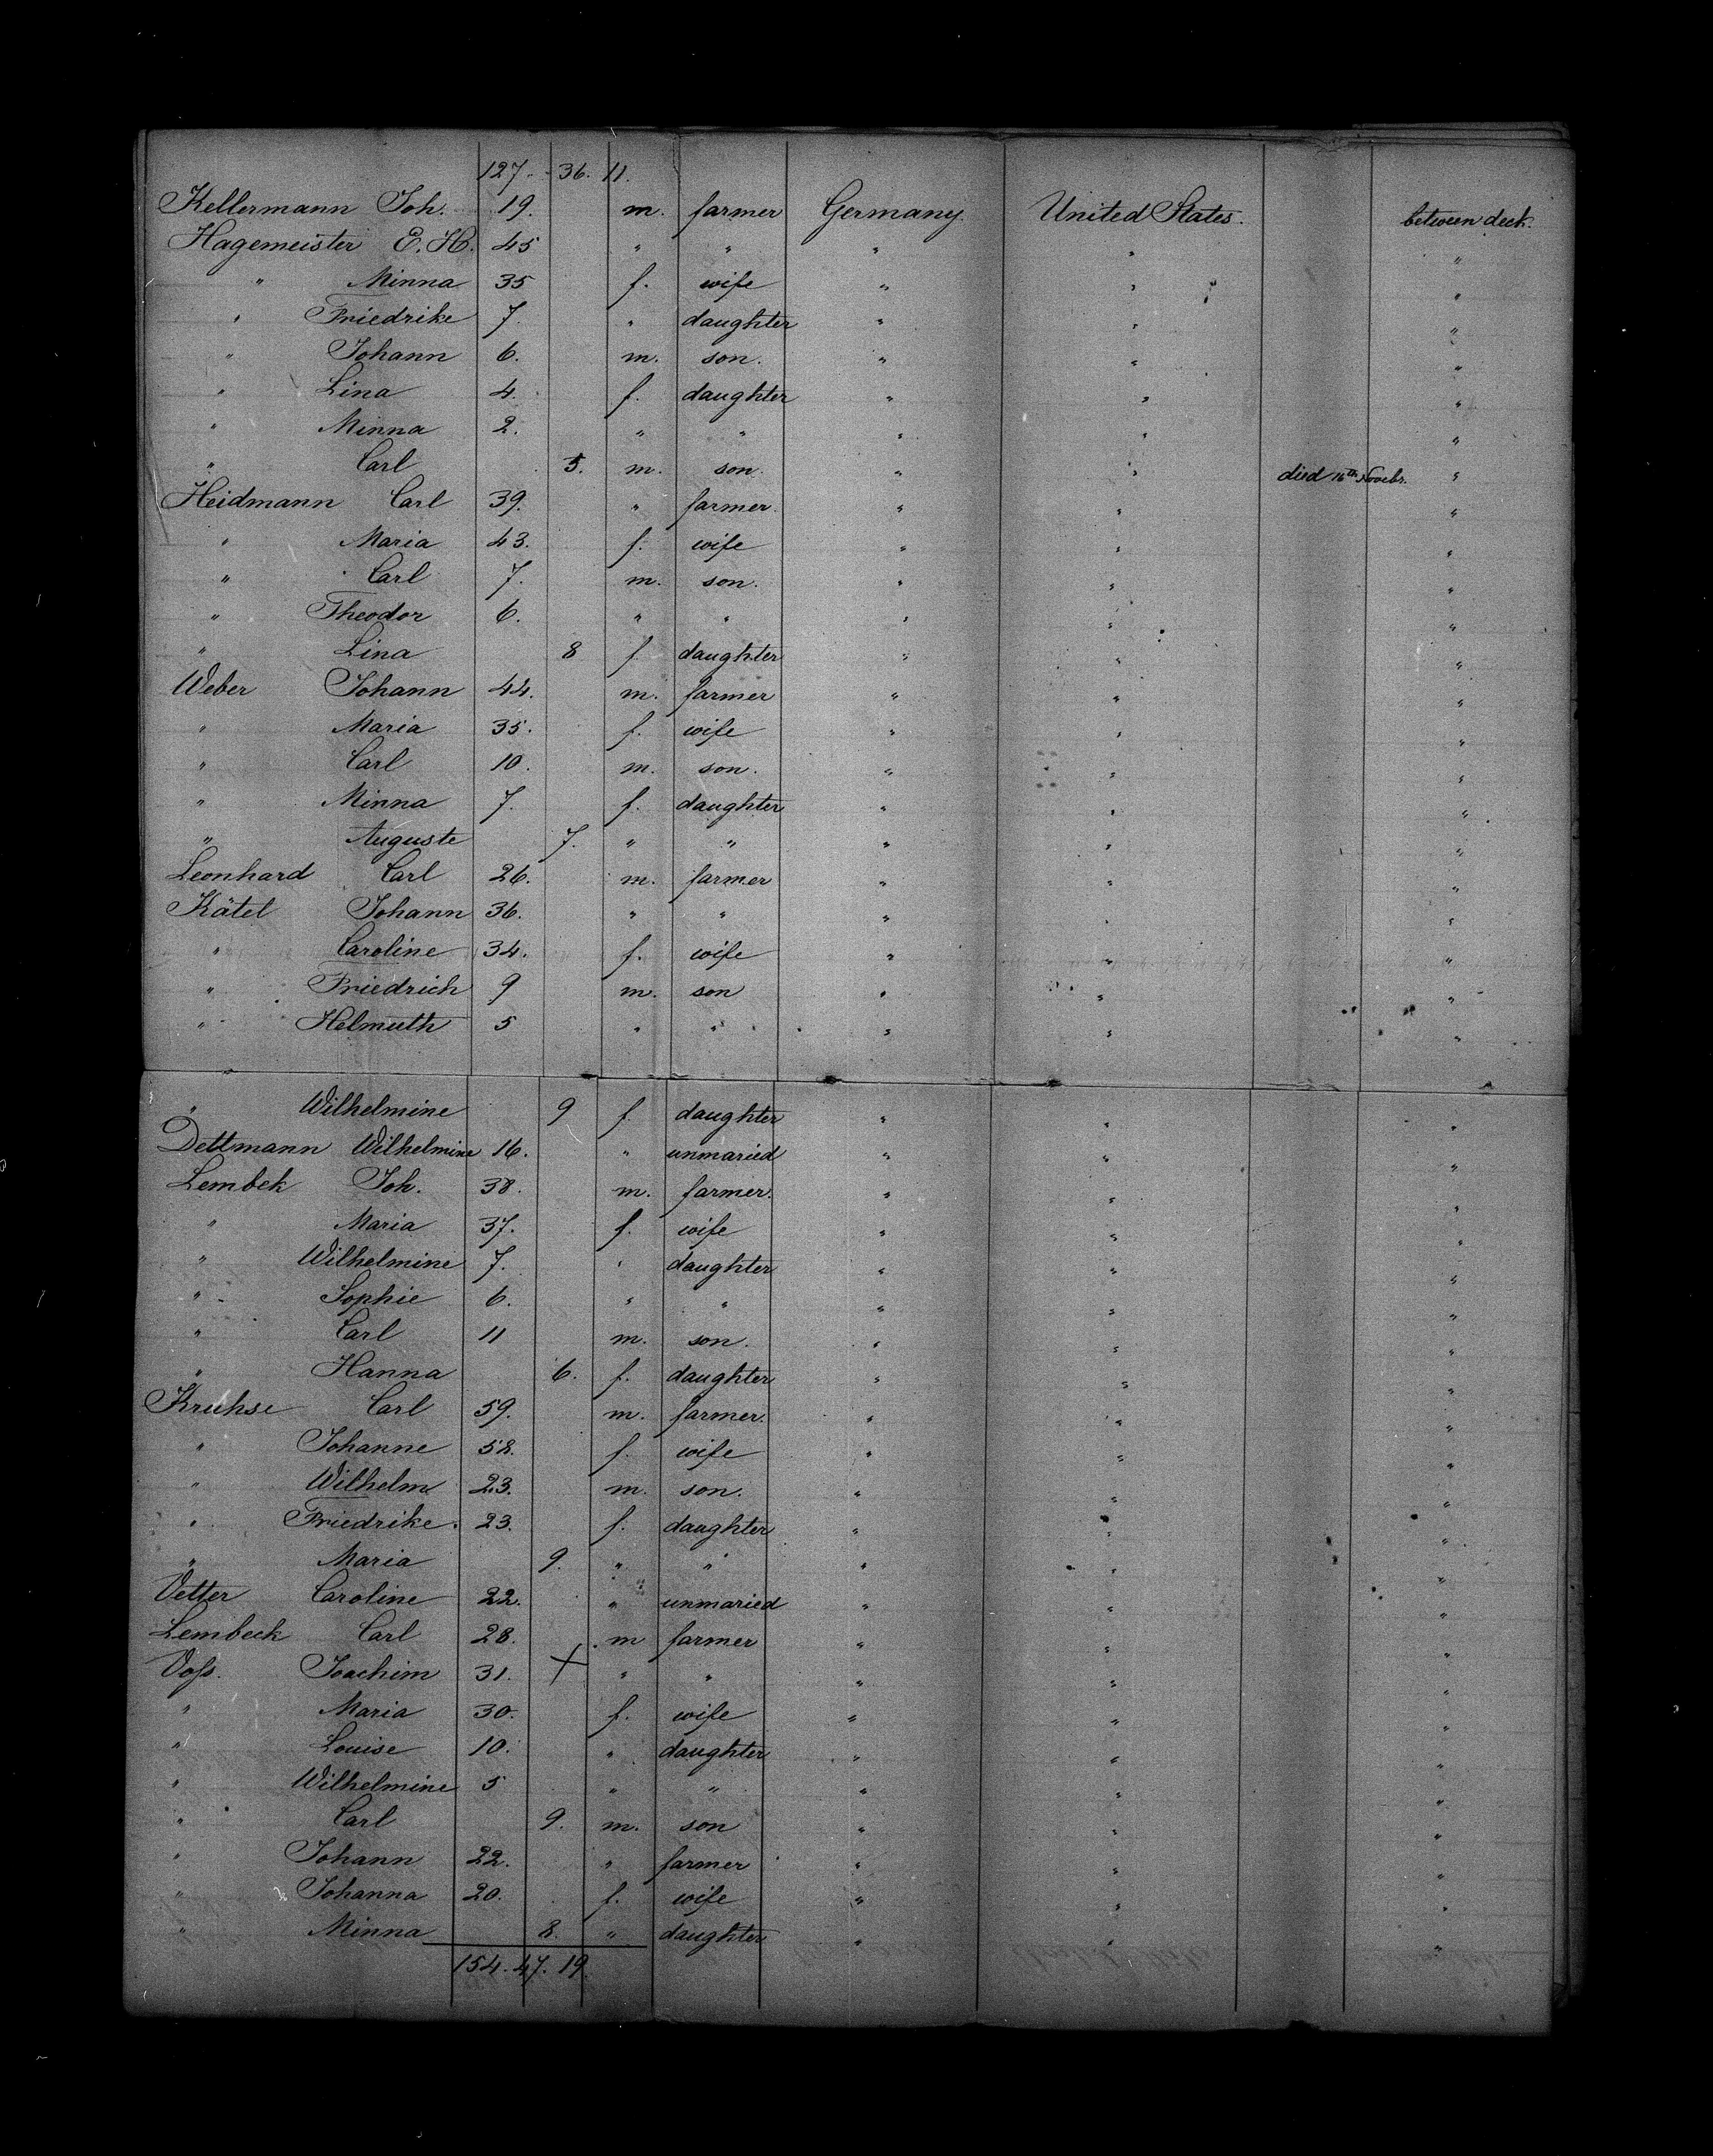 127. 36. 11.
Kellermann Joh. 19. m. farmer Germany. United States. between deck.
Hagemeister E. H. 45 " " " " "
" Minna 35 f. wife " " "
" Friedrike 7. " daughter " " "
" Johann 6. m. son. " " "
" Lina 4. f. daughter " " "
" Minna 2. " " " " "
" Carl 5. m. son. " " died 16th Novebr. "
Heidmann Carl 39. " farmer. " " "
" Maria 43. f. wife " " "
" Carl 7. m. son. " " "
" Theodor 6. " " " " "
" Lina 8 f daughter " " "
Weber Johann 44. m. farmer " " "
" Maria 35. f. wife " " "
" Carl 10. m. son. " " "
" Minna 7. f. daughter " " "
" Auguste 7. " " " " "
Leonhard Carl 26. m. farmer " " "
Kätel Johann 36. " " " " "
" Caroline 34. f. wife " " "
" Friedrich 9 m. son " " "
" Helmuth 5 " " " " "
" Wilhelmine 9 f. daughter " " "
Dettmann Wilhelmine 16. " unmaried " " "
Lembek Joh. 38. m. farmer. " " "
" Maria 37. f. wife " " "
" Wilhelmine 7. " daughter " " "
" Sophie 6. " " " " "
" Carl 11 m. son. " " "
" Hanna 6. f. daughter " " "
Kruhse Carl 59. m. farmer. " " "
" Johanne 58. f. wife " " "
" Wilhelm 23. m. son. " " "
" Friedrike. 23. f. daughter " " "
" Maria 9. " " " " "
Vetter Caroline 22. " unmaried " " "
Lembeck Carl 28. m farmer " " "
Voss. Joachim 31. X " " " " "
" Maria 30. f. wife " " "
" Louise 10. " daughter " " "
" Wilhelmine 5 " " " " "
" Carl 9. m. son " " "
" Johann 22. " farmer " " "
" Johanna 20. f. wife " " "
" Minna 8. " daughter " " "
154. 47. 19.